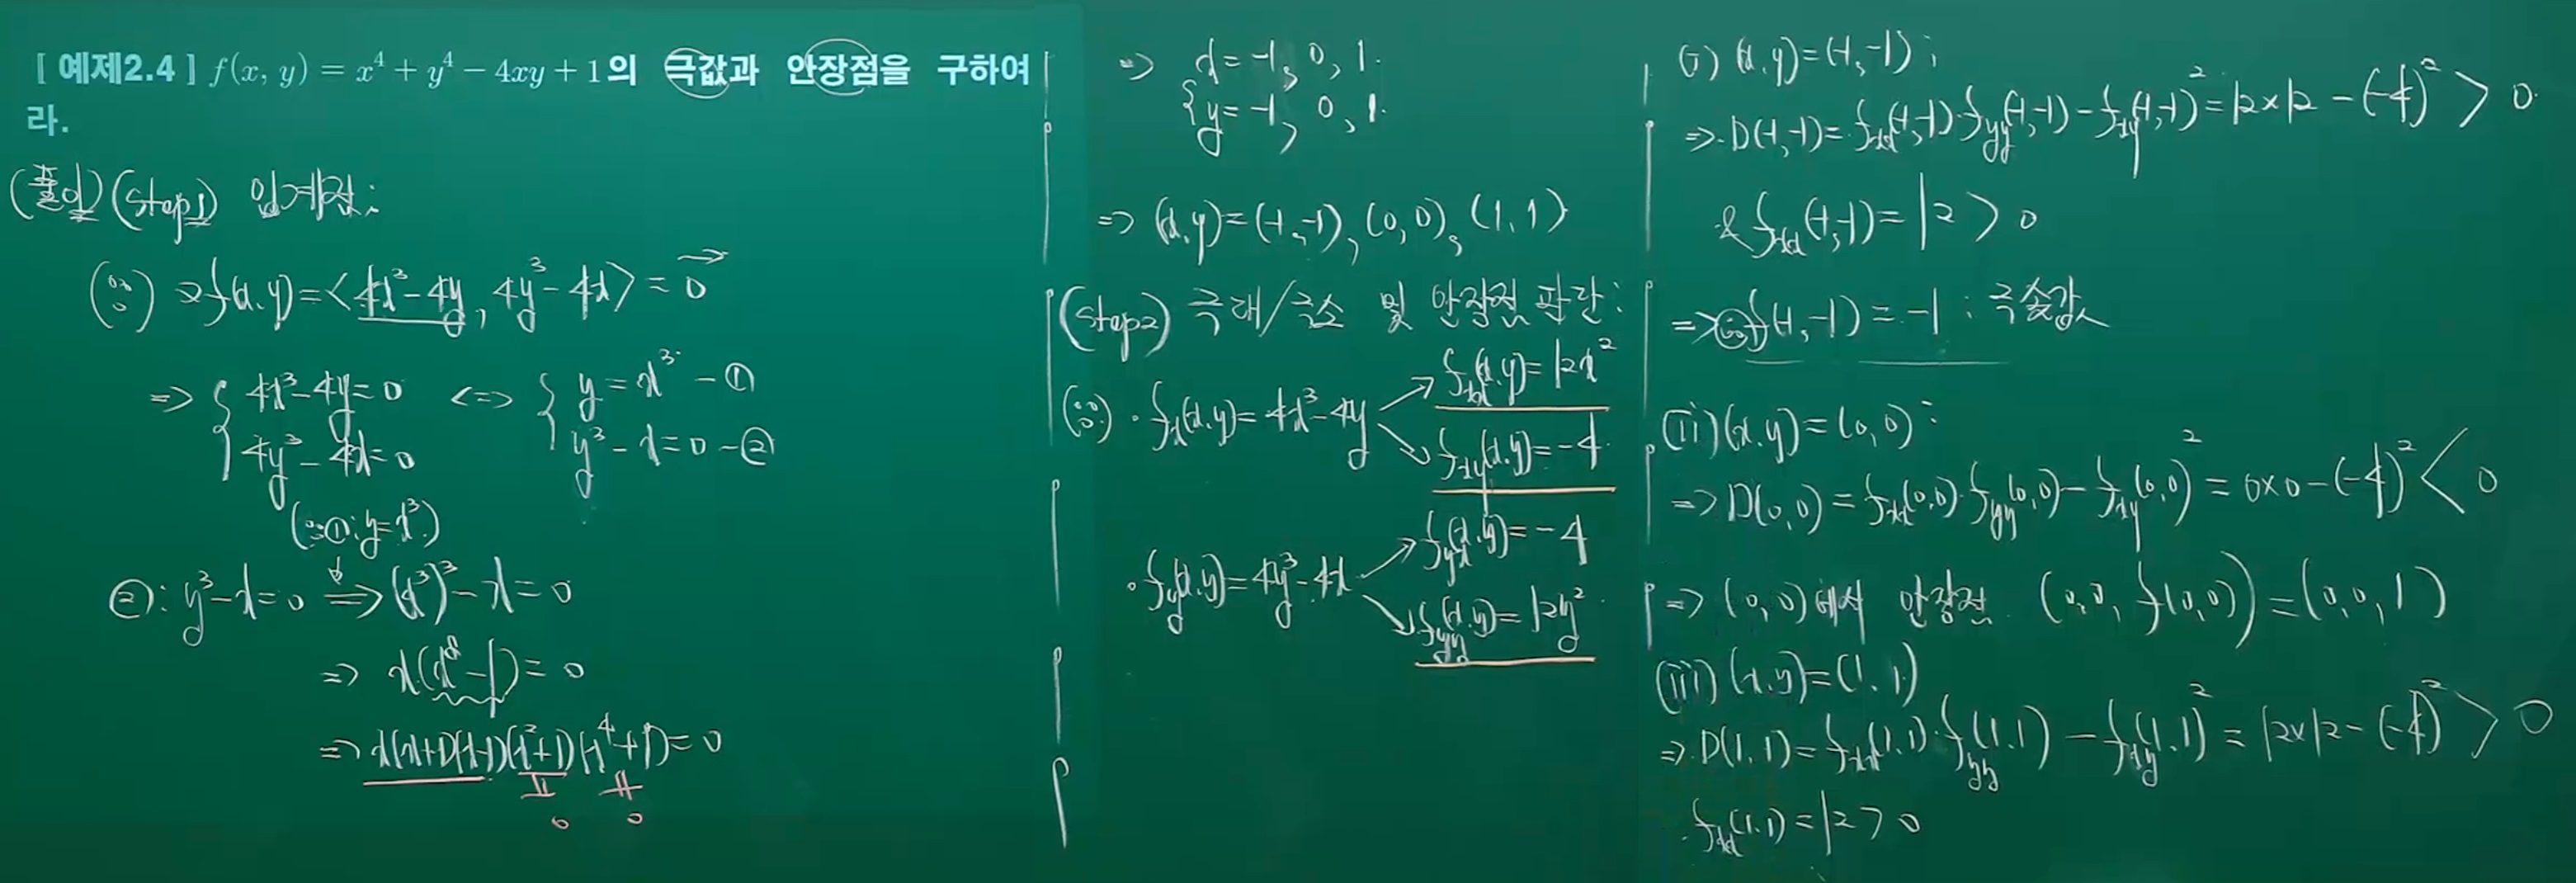 [ 예제2.4 ] f(x, y) = x⁴ + y⁴ − 4xy + 1의 극값과 안장점을 구하여
라.
(풀이) (step1) 임계점 :
(∵) ∇f(x,y) = <4x³−4y, 4y³−4x> = 0⃗
⇒ { 4x³−4y=0 <=> { y = x³ −①
4y³−4x=0 y³−x=0 −②
(∵①: y=x³)
②: y³−x=0 ⇒ (x³)³−x=0
⇒ x(x⁸−1)=0
⇒ x(x+1)(x−1)(x²+1)(x⁴+1)=0
0 0
⇒ x=−1, 0, 1.
{ y=−1, 0, 1.
⇒ (x,y)=(−1,−1), (0,0), (1,1)
(step2) 극대/극소 및 안장점 판단 :
(∵) · fx(x,y)=4x³−4y → fxx(x,y)=12x²
→ fxy(x,y)=−4
· fy(x,y)=4y³−4x → fyx(x,y)=−4
→ fyy(x,y)=12y²
(i) (x,y)=(−1,−1) ;
⇒ D(−1,−1)=fxx(−1,−1)·fyy(−1,−1)−fxy(−1,−1)²=12×12−(−4)² > 0
& fxx(−1,−1)=12 > 0
⇒ ∴ f(−1,−1)=−1 : 극솟값
(ii) (x,y)=(0,0) :
⇒ D(0,0)=fxx(0,0)·fyy(0,0)−fxy(0,0)²=0×0−(−4)² < 0
⇒ (0,0)에서 안장점 (0,0, f(0,0))=(0,0,1)
(iii) (x,y)=(1,1)
⇒ D(1,1)=fxx(1,1)·fyy(1,1)−fxy(1,1)²=12×12−(−4)² > 0
fxx(1,1)=12>0